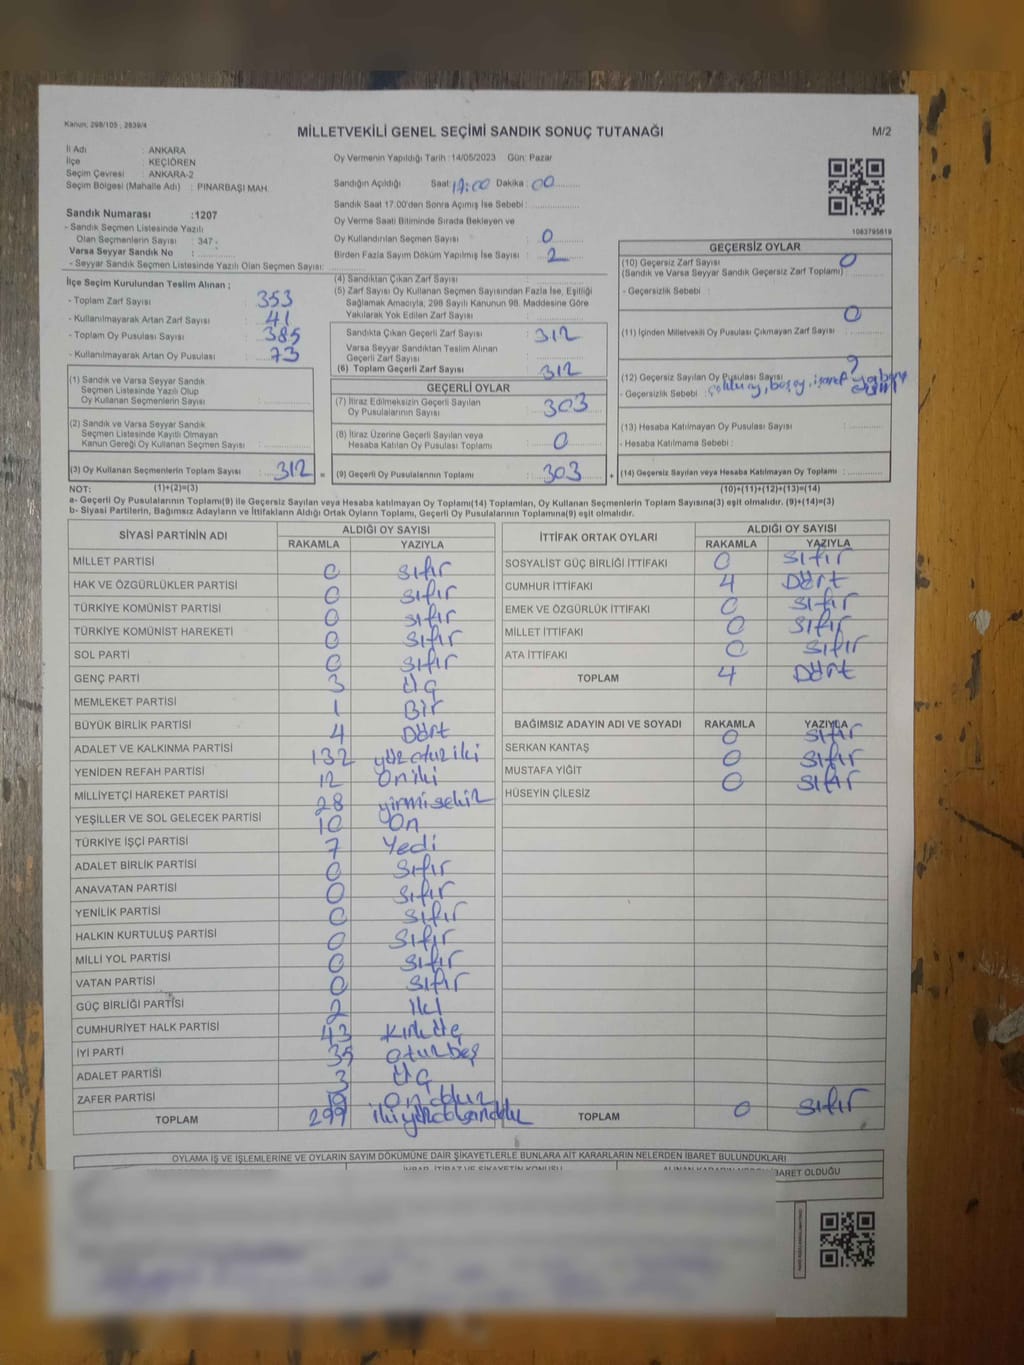 Kanun; 298/105 , 2839/4
MİLLETVEKİLİ GENEL SEÇİMİ SANDIK SONUÇ TUTANAĞI
M/2
İl Adı : ANKARA
İlçe : KEÇİÖREN
Seçim Çevresi : ANKARA-2
Seçim Bölgesi (Mahalle Adı) : PINARBAŞI MAH.
Sandık Numarası :1207
- Sandık Seçmen Listesinde Yazılı
Olan Seçmenlerin Sayısı : 347
Varsa Seyyar Sandık No :
- Seyyar Sandık Seçmen Listesinde Yazılı Olan Seçmen Sayısı:
Oy Vermenin Yapıldığı Tarih : 14/05/2023 Gün: Pazar
Sandığın Açıldığı Saat: 17:00 Dakika : 00
Sandık Saat 17.00'den Sonra Açılmış İse Sebebi :
Oy Verme Saati Bitiminde Sırada Bekleyen ve
Oy Kullandırılan Seçmen Sayısı : 0
Birden Fazla Sayım Döküm Yapılmış İse Sayısı : 2
1083795619
İlçe Seçim Kurulundan Teslim Alınan ;
- Toplam Zarf Sayısı : 353
- Kullanılmayarak Artan Zarf Sayısı : 41
- Toplam Oy Pusulası Sayısı : 385
- Kullanılmayarak Artan Oy Pusulası : 73
(1) Sandık ve Varsa Seyyar Sandık
Seçmen Listesinde Yazılı Olup
Oy Kullanan Seçmenlerin Sayısı :
(2) Sandık ve Varsa Seyyar Sandık
Seçmen Listesinde Kayıtlı Olmayan
Kanun Gereği Oy Kullanan Seçmen Sayısı :
(3) Oy Kullanan Seçmenlerin Toplam Sayısı : 312 =
(4) Sandıktan Çıkan Zarf Sayısı :
(5) Zarf Sayısı Oy Kullanan Seçmen Sayısından Fazla İse, Eşitliği
Sağlamak Amacıyla, 298 Sayılı Kanunun 98. Maddesine Göre
Yakılarak Yok Edilen Zarf Sayısı :
Sandıkta Çıkan Geçerli Zarf Sayısı : 312
Varsa Seyyar Sandıktan Teslim Alınan
Geçerli Zarf Sayısı :
(6) Toplam Geçerli Zarf Sayısı : 312
GEÇERLİ OYLAR
(7) İtiraz Edilmeksizin Geçerli Sayılan
Oy Pusulalarının Sayısı : 303
(8) İtiraz Üzerine Geçerli Sayılan veya
Hesaba Katılan Oy Pusulası Sayısı : 0
(9) Geçerli Oy Pusulalarının Toplamı : 303 +
GEÇERSİZ OYLAR
(10) Geçersiz Zarf Sayısı : 0
(Sandık ve Varsa Seyyar Sandık Geçersiz Zarf Toplamı)
- Geçersizlik Sebebi :
0
(11) İçinden Milletvekili Oy Pusulası Çıkmayan Zarf Sayısı :
(12) Geçersiz Sayılan Oy Pusulası Sayısı :
- Geçersizlik Sebebi : boş oy, işaret
(13) Hesaba Katılmayan Oy Pusulası Sayısı :
- Hesaba Katılmama Sebebi :
(14) Geçersiz Sayılan veya Hesaba Katılmayan Oy Toplamı :
NOT: (1)+(2)=(3) (10)+(11)+(12)+(13)=(14)
a- Geçerli Oy Pusulalarının Toplamı(9) ile Geçersiz Sayılan veya Hesaba katılmayan Oy Toplamı(14) Toplamları, Oy Kullanan Seçmenlerin Toplam Sayısına(3) eşit olmalıdır. (9)+(14)=(3)
b- Siyasi Partilerin, Bağımsız Adayların ve İttifakların Aldığı Ortak Oyların Toplamı, Geçerli Oy Pusulalarının Toplamına(9) eşit olmalıdır.
SİYASİ PARTİNİN ADI ALDIĞI OY SAYISI
RAKAMLA YAZIYLA
MİLLET PARTİSİ 0 sıfır
HAK VE ÖZGÜRLÜKLER PARTİSİ 0 sıfır
TÜRKİYE KOMÜNİST PARTİSİ 0 sıfır
TÜRKİYE KOMÜNİST HAREKETİ 0 sıfır
SOL PARTİ 0 sıfır
GENÇ PARTİ 3 üç
MEMLEKET PARTİSİ 1 Bir
BÜYÜK BİRLİK PARTİSİ 4 Dört
ADALET VE KALKINMA PARTİSİ 132 yüzotuziki
YENİDEN REFAH PARTİSİ 12 oniki
MİLLİYETÇİ HAREKET PARTİSİ 28 yirmisekiz
YEŞİLLER VE SOL GELECEK PARTİSİ 10 on
TÜRKİYE İŞÇİ PARTİSİ 7 Yedi
ADALET BİRLİK PARTİSİ 0 sıfır
ANAVATAN PARTİSİ 0 sıfır
YENİLİK PARTİSİ 0 sıfır
HALKIN KURTULUŞ PARTİSİ 0 sıfır
MİLLİ YOL PARTİSİ 0 sıfır
VATAN PARTİSİ 0 sıfır
GÜÇ BİRLİĞİ PARTİSİ 2 iki
CUMHURİYET HALK PARTİSİ 43 kırküç
İYİ PARTİ 35 otuzbeş
ADALET PARTİSİ 3 üç
ZAFER PARTİSİ
TOPLAM 299
İTTİFAK ORTAK OYLARI ALDIĞI OY SAYISI
RAKAMLA YAZIYLA
SOSYALİST GÜÇ BİRLİĞİ İTTİFAKI 0 sıfır
CUMHUR İTTİFAKI 4 Dört
EMEK VE ÖZGÜRLÜK İTTİFAKI 0 sıfır
MİLLET İTTİFAKI 0 sıfır
ATA İTTİFAKI 0 sıfır
TOPLAM 4 Dört
BAĞIMSIZ ADAYIN ADI VE SOYADI RAKAMLA YAZIYLA
SERKAN KANTAŞ 0 sıfır
MUSTAFA YİĞİT 0 sıfır
HÜSEYİN ÇİLESİZ 0 sıfır
TOPLAM 0 sıfır
OYLAMA İŞ VE İŞLEMLERİNE VE OYLARIN SAYIM DÖKÜMÜNE DAİR ŞİKAYETLERLE BUNLARA AİT KARARLARIN NELERDEN İBARET BULUNDUKLARI
İHBAR, İTİRAZ VE ŞİKAYETİN KONUSU
ALINAN KARARIN NEDEN İBARET OLDUĞU